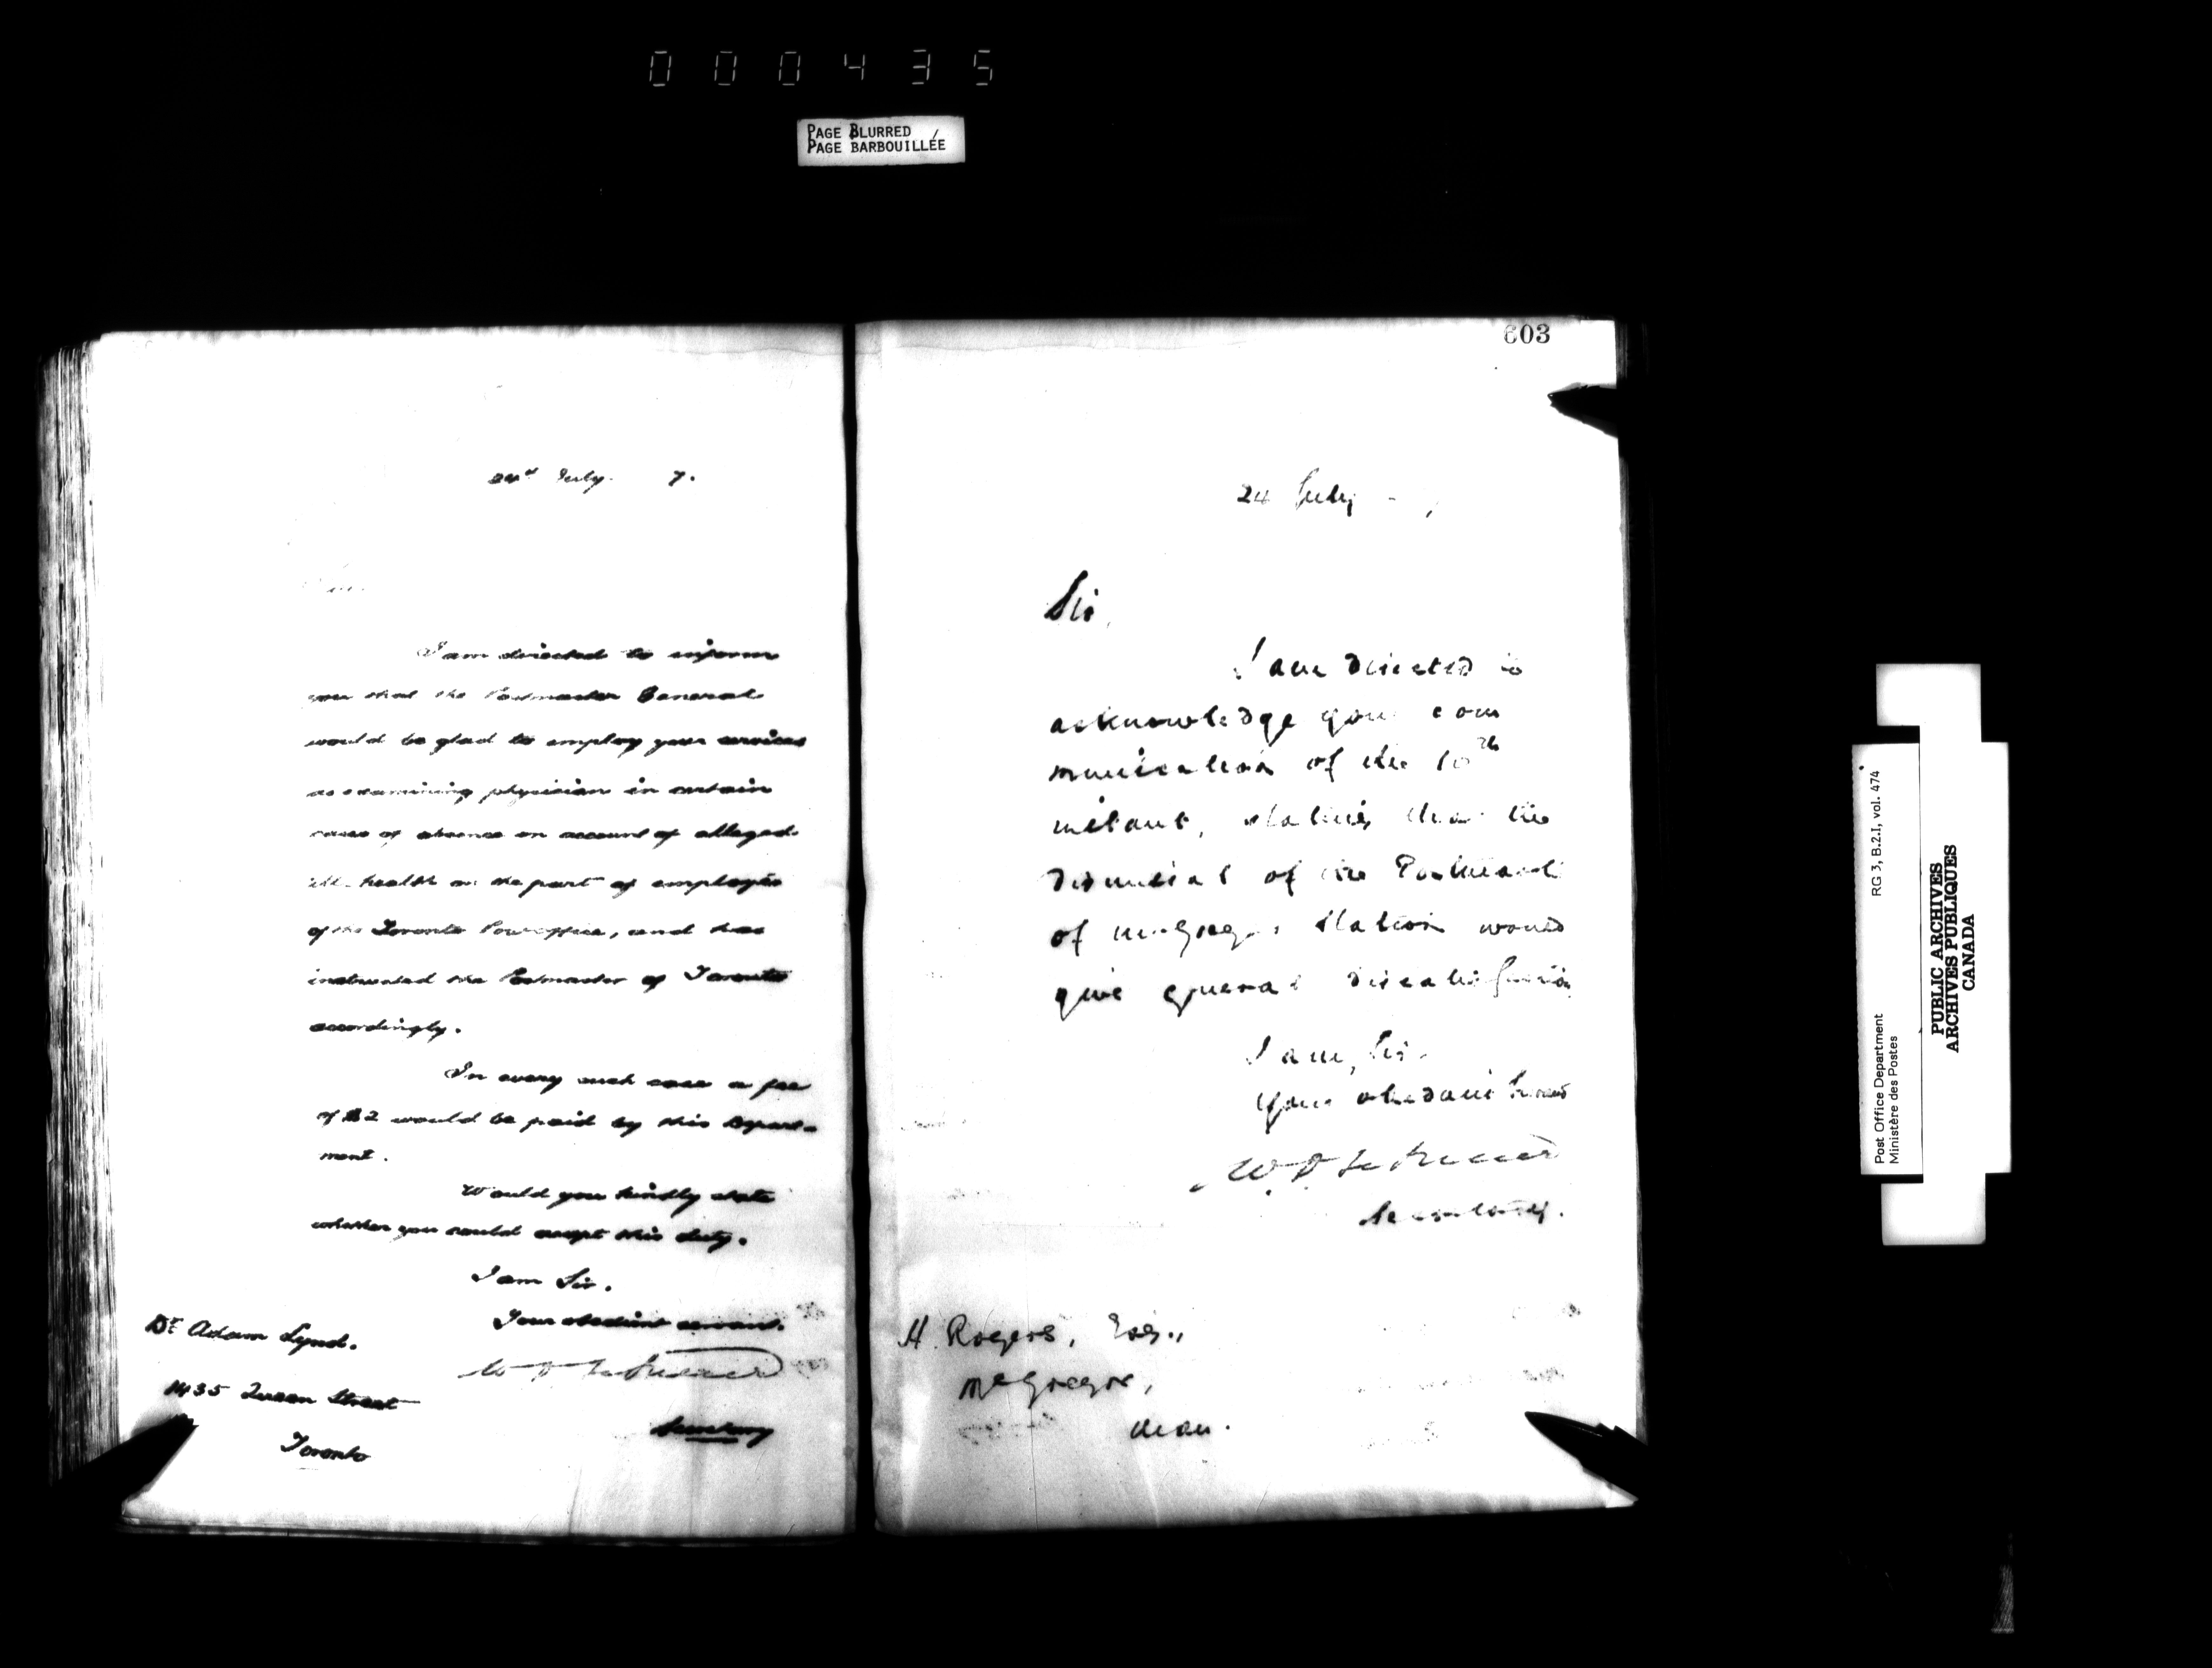 000435
PAGE BLURRED
PAGE BARBOUILLÉE
24th July. 7.
Sir,
I am directed to inform
you that the Postmaster General
would be glad to employ your services
as examining physician in certain
cases of absence on account of alleged
ill-health on the part of employés
of the Toronto Post office, and has
instructed the Postmaster of Toronto
accordingly.
In every such case a fee
of $2 would be paid by this Depart-
ment.
Would you kindly state
whether you would accept this duty.
I am Sir.
Your obedient servant.
Secretary
Dr Adam Lynd.
1435 Queen Street
Toronto
603
24 July
Sir,
I am directed to
acknowledge your com
munication of the 10th
instant, stating that the
dismissal of the Postmaster
of McGregor Station would
give general dissatisfaction
I am, Sir.
Your obedient Servant
Secretary.
H. Rogers, Esq.,
McGregor,
Man.
RG 3, B.2.I, vol. 474
Post Office Department
Ministère des Postes
PUBLIC ARCHIVES
ARCHIVES PUBLIQUES
CANADA